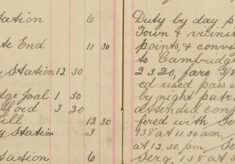 Station 6
te End 11 30
y Station 12 30
dge Goal 1 50
Ford 3 20
Hill 12 30
y Station 3
Station 6
Duty by day p
Town &
points, & conv
to Cambridge
2320, fare 7/8
ed used pass
by night patr
attended con
fered with Co
138 at 11.30 am,
at 12.30 am, Se
Serg, 138 at